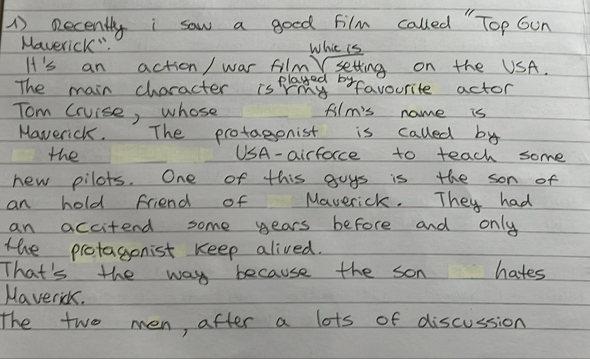 1) Recently i saw a good film called "Top Gun
Maverick".
whic is
It's an action/war film √ setting on the USA.
played by
The main character is √ my favourite actor
Tom Cruise, whose film's name is
Maverick. The protagonist is called by
the USA-airforce to teach some
new pilots. One of this guys is the son of
an hold friend of Maverick. They had
an accitend some years before and only
the protagonist keep alived.
That's the way because the son hates
Maverick.
The two men, after a lots of discussion